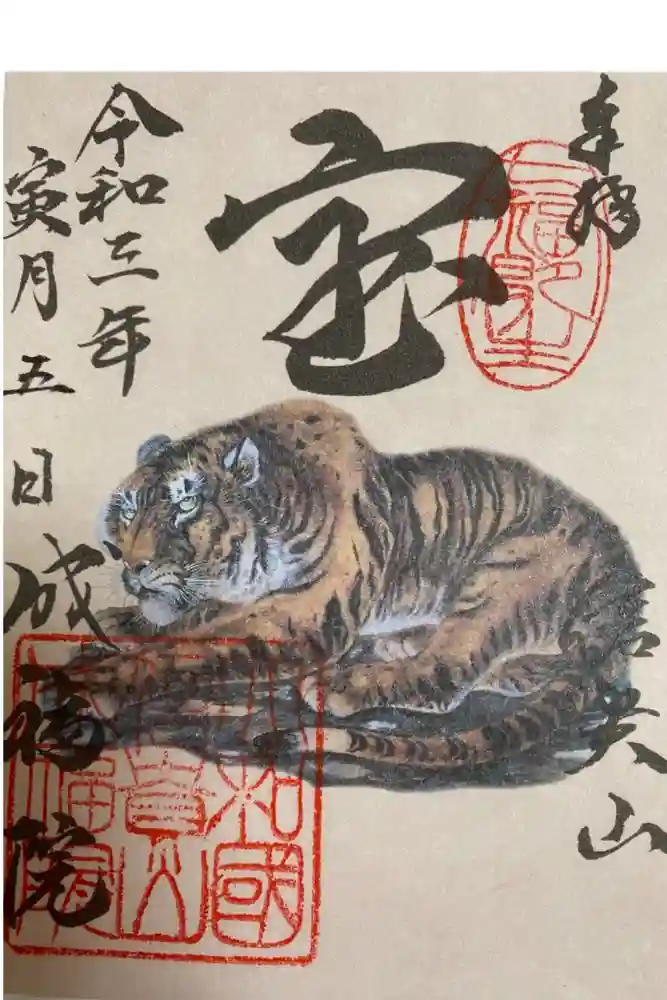 奉拝
信貴山
宝
令和三年
寅月五日
成福院